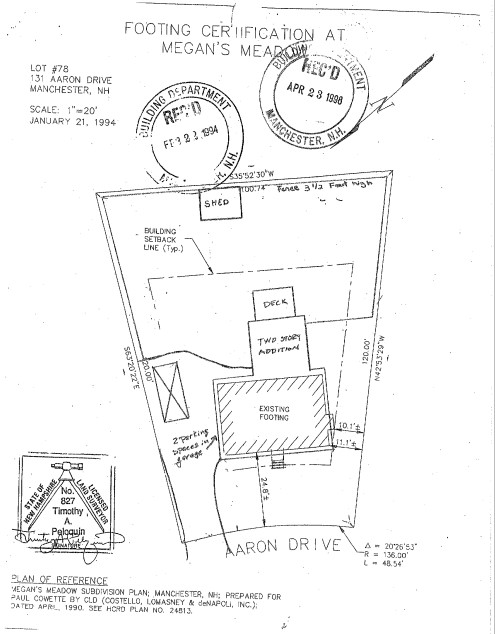 FOOTING CERTIFICATION AT
MEGAN'S MEADOW
LOT #78
131 AARON DRIVE
MANCHESTER, NH
SCALE: 1"=20'
JANUARY 21, 1994
BUILDING DEPARTMENT
REC'D
FEB 22 1994
N.H.
BUILDING DEPARTMENT
REC'D
APR 23 1998
MANCHESTER, N.H.
S35°52'30"W
100.74' Fence 3 1/2 Foot high
SHED
BUILDING
SETBACK
LINE (Typ.)
DECK
TWO STORY
ADDITION
S63°20'22"E
120.00'
120.00'
N42°53'29"W
EXISTING
FOOTING
2 Parking
spaces in
garage
10.1'±
11.1'±
24.8'±
STATE OF
NEW HAMPSHIRE
LICENSED
LAND SURVEYOR
No.
827
Timothy
A.
Peloquin
SIGNATURE
AARON DRIVE
Δ = 20°26'53"
R = 136.00'
L = 48.54'
PLAN OF REFERENCE
MEGAN'S MEADOW SUBDIVISION PLAN; MANCHESTER, NH; PREPARED FOR
PAUL COWETTE BY CLD (COSTELLO, LOMASNEY & deNAPOLI, INC.);
DATED APRIL, 1990. SEE HCRD PLAN NO. 24813.